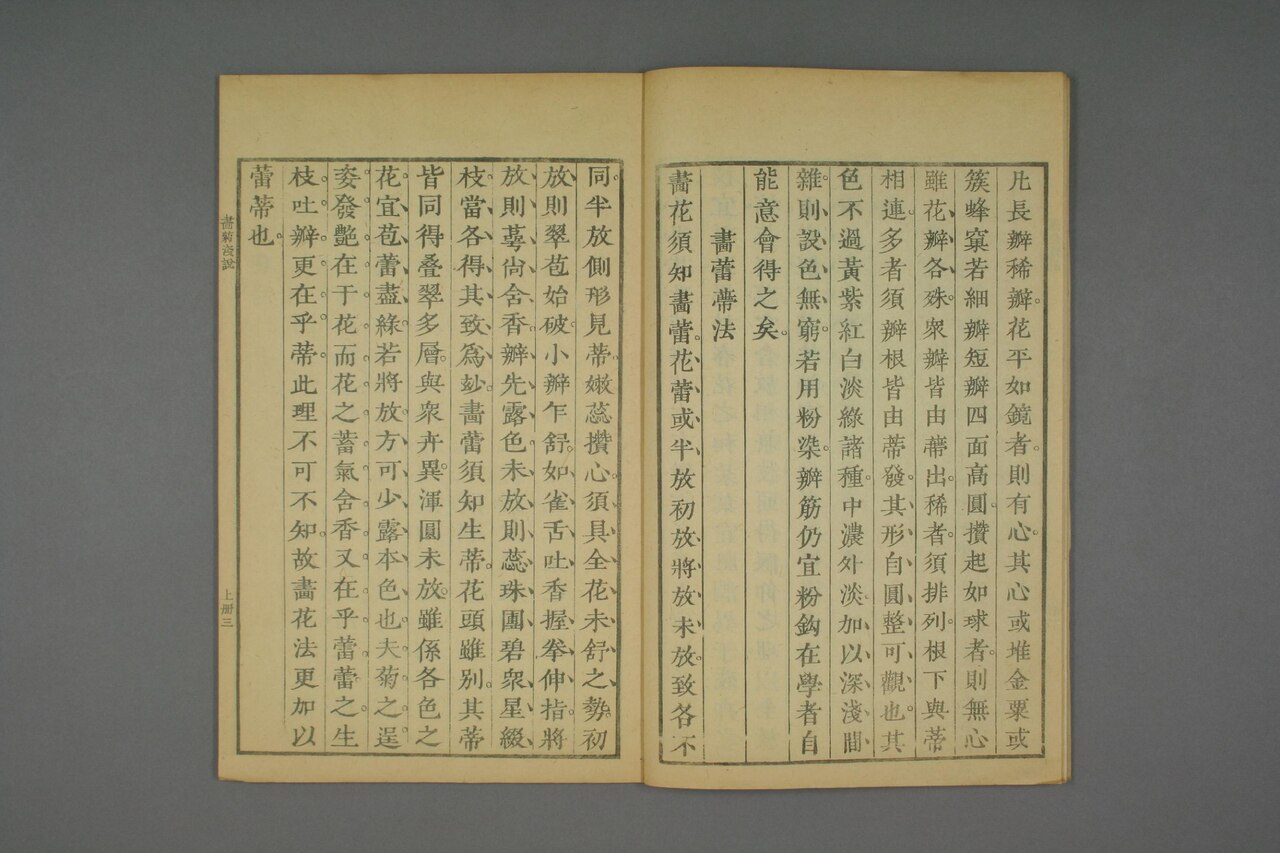 片長瓣稀瓣花平如鏡者。則有心。其心或堆金粟或
簇蜂窠若細瓣短瓣四面高圓。攢起如球者。則無心
雖花瓣各殊。衆瓣皆由蒂出。稀者須排列。根下與蒂
相連。多者須瓣根皆由蒂發。其形自圓整可觀也。其
色不過黃紫紅白淡綠諸種。中濃外淡。加以深淺間
雜。則設色無窮。若用粉染。瓣筋仍宜粉鈎在學者自
能意會得之矣。
畵蕾蒂法
畵花須知畵蕾。花蕾或半放初放將放未放。致各不
同。半放側形見蒂。嫩蕊攢心。須具全花未舒之勢。初
放則翠苞始破。小瓣乍舒。如雀舌吐香握拳伸指。將
放則萼尙含香瓣先露色未放則蕊珠團碧衆星綴
枝。當各得其致爲玅。畵蕾須知生蒂。花頭雖別。其蒂
皆同。得叠翠多層。與衆卉異。渾圓未放。雖係各色之
花。宜苞蕾盡綠。若將放方可少露本色也。夫菊之逞
姿發艶在于花而花之蓄氣含香又在乎蕾蕾之生
枝。吐瓣更在乎蒂。此理不可不知。故畵花法更加以
蕾蒂也。
畵菊淺說
上册三